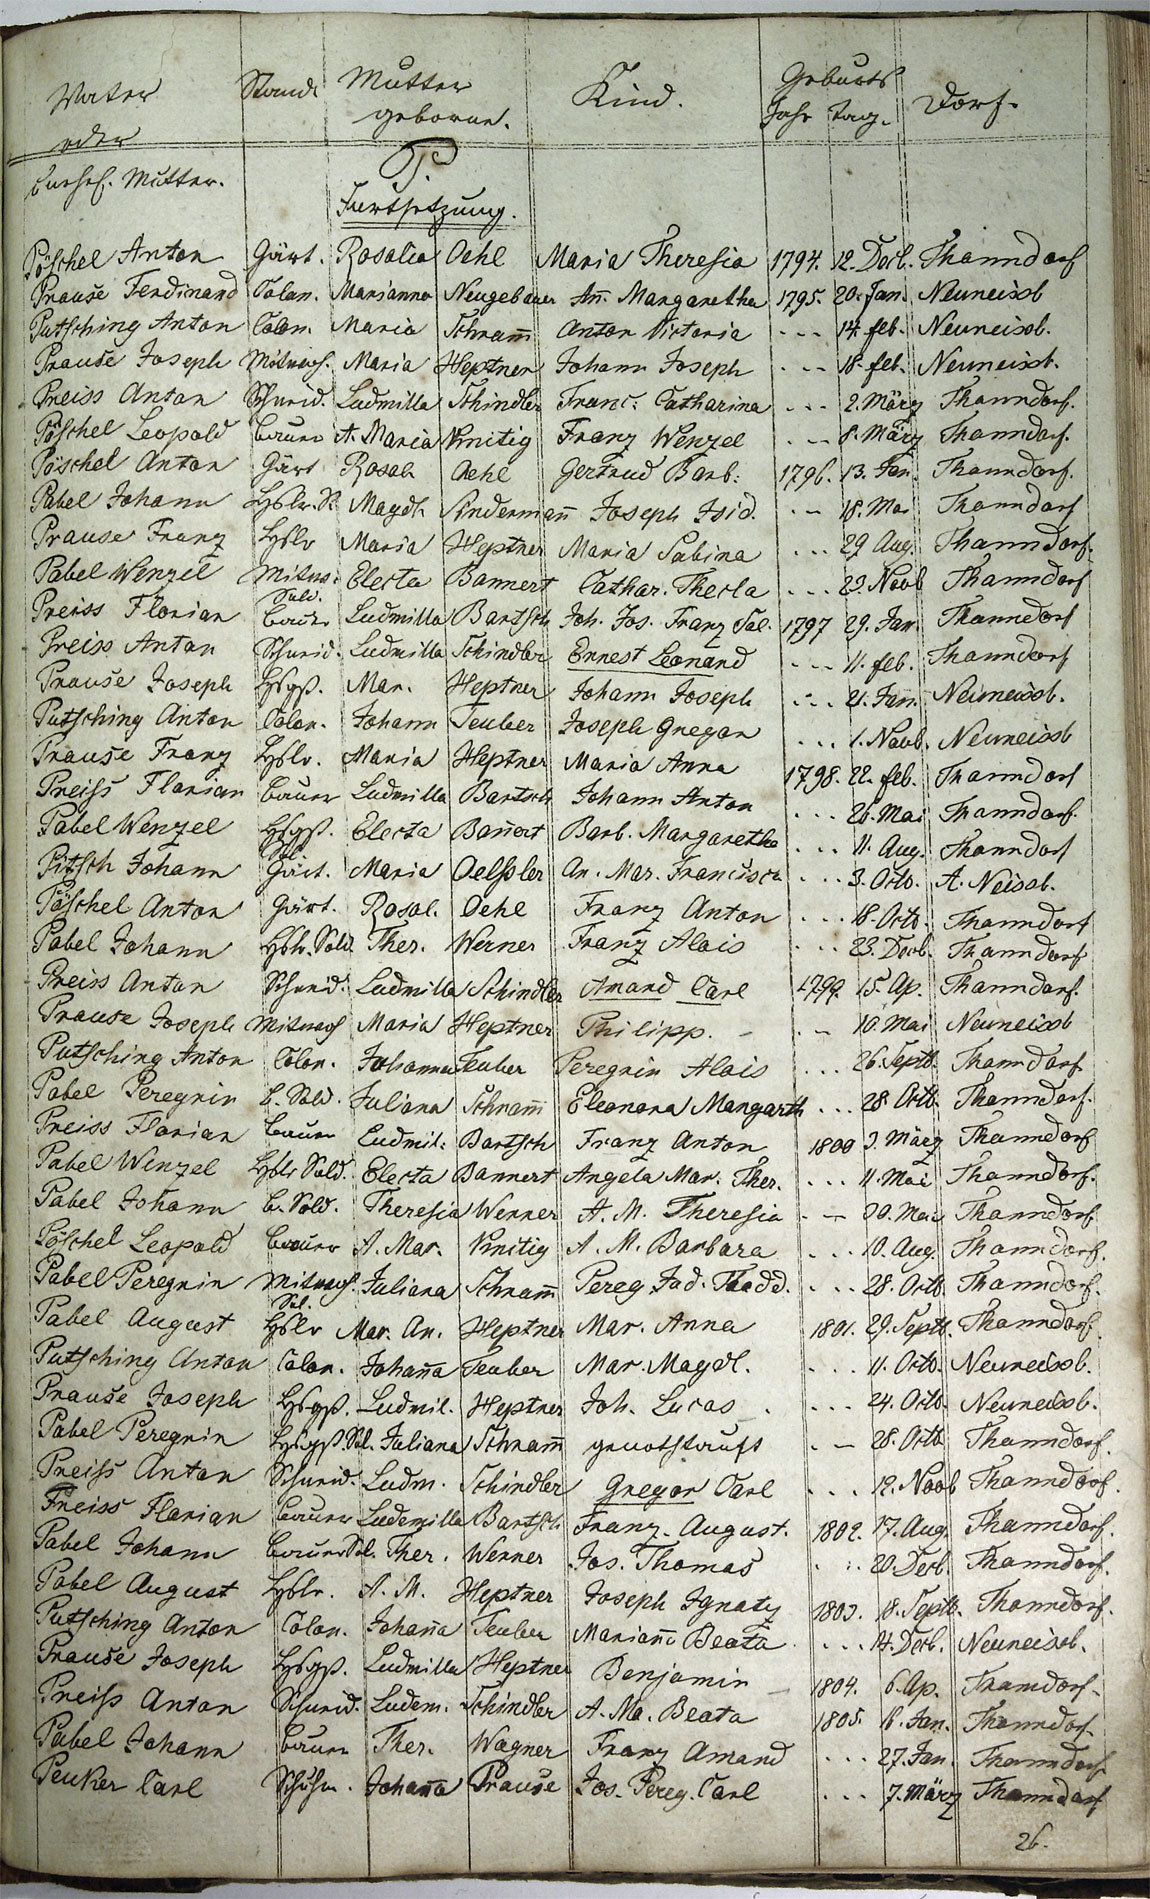 Vater Stand Mutter Kind. Geburts Dorf.
oder geborne. Jahr tag.
unehel. Mutter. P.
Fortsetzung.
Pöschel Anton Gärt. Rosalia Oehl Maria Theresia 1794. 12. Decb. Thanndorf
Prause Ferdinand Colon. Marianna Neugebauer An̄. Margaretha 1795. 20. Jan. Neuneisb
Putsching Anton Colon. Maria Schram̄ Anton Victoria - - - 14. feb. Neuneisb.
Prause Joseph Mitwoh. Maria Heptner Johann Joseph - - - 18. feb. Neuneisb.
Preiss Anton Schneid. Ludmilla Schindler Franc: Catharina - - - 2. März Thanndorf.
Pöschel Leopold Bauer A. Maria Knitig Franz Wenzel - - 8. März Thanndorf.
Pöschel Anton Gärt Rosal. Oehl Gertrud Barb: 1796. 13. Jan. Thanndorf.
Pabel Johann Hslr. S. Magdl. Linderman̄ Joseph Isid. - - 18. Mai Thanndorf
Prause Franz Hslr Maria Heptner Maria Sabina - - - 29 Aug. Thanndorf.
Pabel Wenzel Mitwo. Sold. Electa Bannert Cathar. Thecla - - - 23. Novb Thanndorf
Preiss Florian Bauer Ludmilla Bartsch Joh. Jos. Franz Sal. 1797 29. Jan. Thanndorf
Preiss Anton Schneid. Ludmilla Schindler Ernest Leonard - - - 11. feb. Thanndorf
Prause Joseph Hsgß. Mar. Heptner Johann Joseph - - - 21. Jan. Neuneisb.
Putsching Anton Colon. Johann Teuber Joseph Gregor - - - 1. Novb. Neuneisb
Prause Franz Hslr. Maria Heptner Maria Anna 1798. 22. feb. Thanndorf
Preiss Florian Bauer Ludmilla Bartsch Johann Anton - - - 26. Mai Thanndorf.
Pabel Wenzel Hsgß. Sol. Electa Ban̄ert Barb. Margaretha - - - 11. Aug. Thanndorf
Pitsch Johann Gärt. Maria Oelssler An. Mar. Francisca - - - 3. Octb. A. Neisb.
Pöschel Anton Gärt. Rosal. Oehl Franz Anton - - - 18. Octb. Thanndorf
Pabel Johann Hslr. Sold. Ther. Werner Franz Alois - - - 23. Decb. Thanndorf
Preiss Anton Schneid. Ludmilla Schindler Amand Carl 1799. 15. Ap. Thanndorf.
Prause Joseph Mitwoh Maria Heptner Philipp. - - - 10. Mai Neuneisb
Putsching Anton Colon. Johanna Teuber Peregrin Alois - - - 26. Septb. Thanndorf
Pabel Peregrin B. Sold. Juliana Schram̄ Eleonora Margarth - - - 28. Octb. Thanndorf.
Preiss Florian Bauer Ludmil. Bartsch Franz Anton 1800 3. März Thanndorf
Pabel Wenzel Hslr Sold. Electa Bannert Angela Mar. Ther. - - - 11. Mai Thanndorf.
Pabel Johann B. Sold. Theresia Werner A. M. Theresia - - 30. Mai Thanndorf
Pöschel Leopold Bauer A. Mar. Knitig A. M. Barbara - - - 10. Aug. Thanndorf.
Pabel Peregrin Mitwoh. Sol. Juliana Schram̄ Pereg. Jud. Thadd. - - - 28. Octb. Thanndorf.
Pabel August Hslr Mar. An. Heptner Mar. Anna 1801. 29. Septb. Thanndorf.
Putsching Anton Colon. Johan̄a Teuber Mar. Magdl. - - - 11. Octb. Neuneisb.
Prause Joseph Hsgß. Ludmil. Heptner Joh. Lucas - - - 24. Octb. Neuneisb.
Pabel Peregrin Hsgß. Sol. Juliana Schram̄ genothtauft - - 28. Octb Thanndorf.
Preiss Anton Schneid. Ludm. Schindler Gregor Carl - - - 12. Novb Thanndorf.
Preiss Florian Bauer Ludemilla Bartsch Franz August. 1802. 17. Aug. Thanndorf.
Pabel Johann Bauer Sol. Ther. Werner Jos. Thomas - - - 20. Decb. Thanndorf.
Pabel August Hslr. A. M. Heptner Joseph Ignatz 1803. 18. Septb. Thanndorf.
Putsching Anton Colon. Johan̄a Teuber Marian̄ Beata - - - 14. Decb. Neuneisb.
Prause Joseph Hsgß. Ludmilla Heptner Benjamin - 1804. 6. Ap. Thanndorf
Preiss Anton Schneid. Ludem. Schindler A. Ma. Beata 1805. 6. Jan. Thanndorf
Pabel Johann Bauer Ther. Wagner Franz Amand - - - 27. Jan. Thanndorf
Peuker Carl Schuhm. Johan̄a Prause Jos. Pereg. Carl - - - 7. März Thanndorf
26.